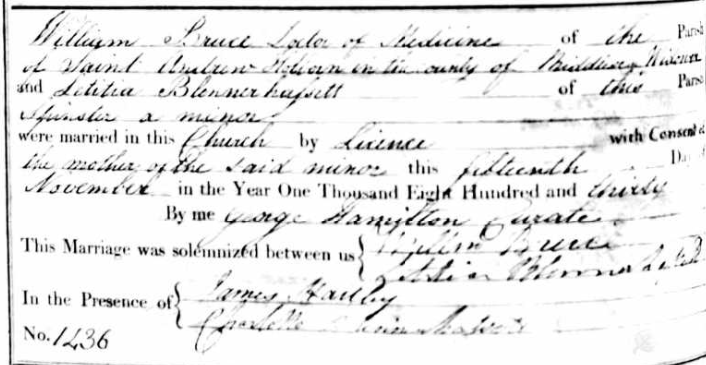 William Bruce Doctor of Medicine of the Parish
of Saint Andrew Holborn in the County of Middlesex Widower
and Letitia Blennerhassett of this Parish
Spinster a minor
were married in this Church by Licence with Consent of
the mother of the said minor this fifteenth Day of
November in the Year One Thousand Eight Hundred and thirty
By me George Hamilton Curate
This Marriage was solemnized between us { William Bruce
Letitia Blennerhassett
In the Presence of { James
Charlotte
No. 1236